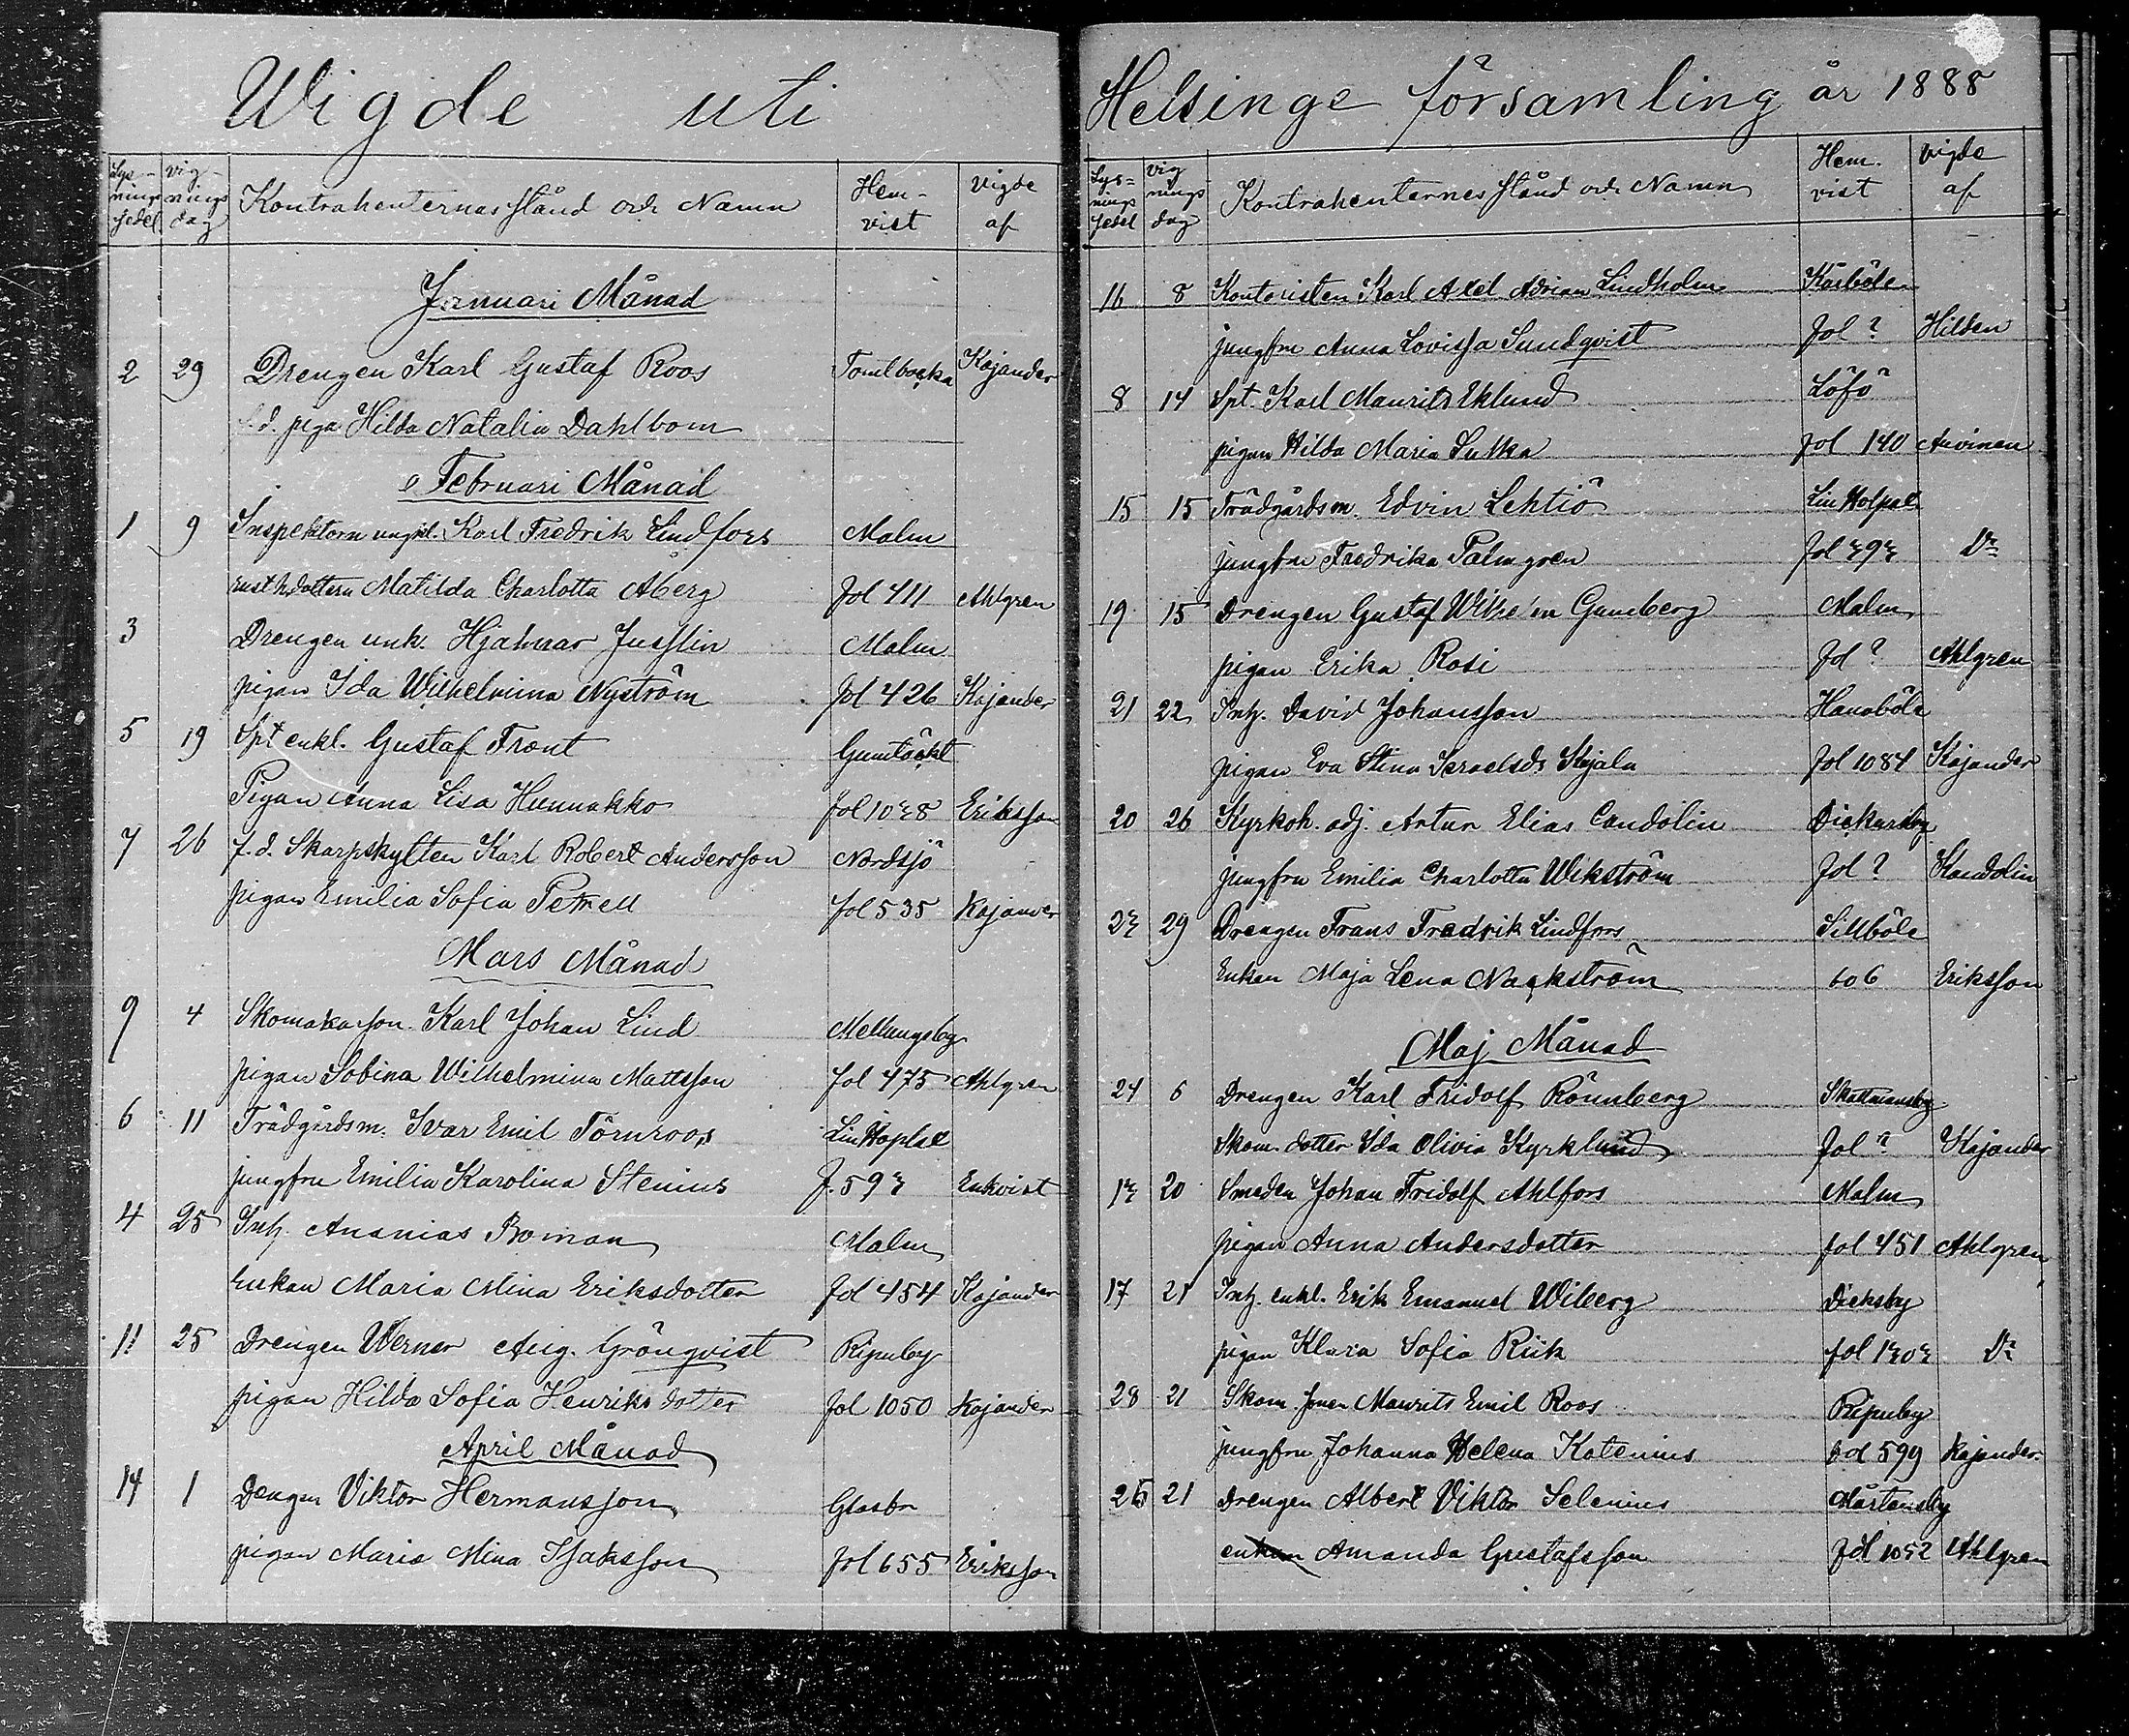 Wigde uti
Lys-nings sedel vig-nings dag Kontrahenternas stånd och Namn Hem-vist vigde af
Januari Månad
2 29 Drengen Karl Gustaf Roos Tomtbacka Kajander
f.d. piga Hilda Natalia Dahlbom
Februari Månad
1 9 Inspektorn ungkl. Karl Fredrik Lindfors Malm
rusth.dottern Matilda Charlotta Åberg fol 411 Ahlgren
3 Drengen enk. Hjalmar Jusslin Malm
pigan Ida Wilhelmina Nyström fol 426 Kajander
5 19 Spt enkl. Gustaf Front Gumtäckt
Pigan Anna Lisa Hunnakko fol 1028 Eriksson
7 26 f.d. Skarpskytten Karl Robert Andersson Nordsjö
pigan Emilia Sofia Petrell fol 535 Kajander
Mars Månad
9 4 Skomakarson Karl Johan Lind Mellungsby
pigan Sobina Wilhelmina Mattsson fol 475 Ahlgren
6 11 Trädgårdsm. Ivar Emil Törnroos
jungfru Emilia Karolina Stenius f. 592 Enkvist
4 25 Inh. Ananias Boman Malm
enkan Maria Mina Eriksdotter fol 454 Kajander
11 25 Drengen Werner Aug. Grönqvist Ripuby
pigan Hilda Sofia Henriksdotter fol 1050 Kajander
April Månad
14 1 Dengen Viktor Hermansson Glasbr
pigan Maria Mina Isaksson fol 655 Eriksson
Helsinge församling år 1888
Lys-nings sedel vig nings dag Kontrahenternes stånd och Namn Hem. vist vigde af
16 8 Kontoristen Karl Axel Adrian Lindholm Kårböle
jungfru Anna Lovissa Sundqvist fol ? Hilden
8 14 Spt. Karl Maurits Eklund Löfö
pigan Hilda Maria Sutka fol 140 Auvinen
15 15 Trädgårdsm. Edvin Lehtiö
jungfru Fredrika Palmgren fol 292 Do
19 15 Drengen Gustaf Wilhelm Gumberg Malm
pigan Erika Rosi fol ? Ahlgren
21 22 Inh. David Johansson Hanaböle
pigan Eva Stina Israelsd. Skjala fol 1084 Kajander
20 26 Kyrkoh. adj. Artur Elias Candolin Dickursby
jungfru Emilia Charlotta Wikström fol ? Kandolin
22 29 Drengen Frans Fredrik Lindfors Sillböle
Enkan Maja Lena Nackström 606 Eriksson
Maj Månad
24 6 Drengen Karl Fridolf Rönnberg Skattmansby
Skom. dotter Ida Olivia Kyrklund fol ? Kajander
12 20 Smeden Johan Fridolf Ahlfors Malm
pigan Anna Andersdotter fol 451 Ahlgren
17 21 Inh. enkl. Erik Emanuel Wiberg Dicksby
pigan Klara Sofia Riik fol 1202 Do
28 21 Skom. sonen Maurits Emil Roos Ripuby
jungfru Johanna Helena Katenius fol 599 Kajander
26 21 Drengen Albert Viktor Selenius Mårtensby
enkan Amanda Gustafsson fol 1052 Ahlgren